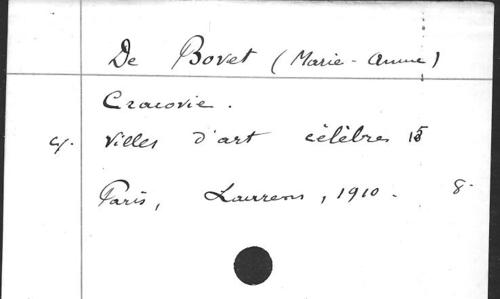 De Bovet (Marie-Anne)
Cracovie.
cf. Villes d'art célèbres 15
Paris, Laurens, 1910. 8.